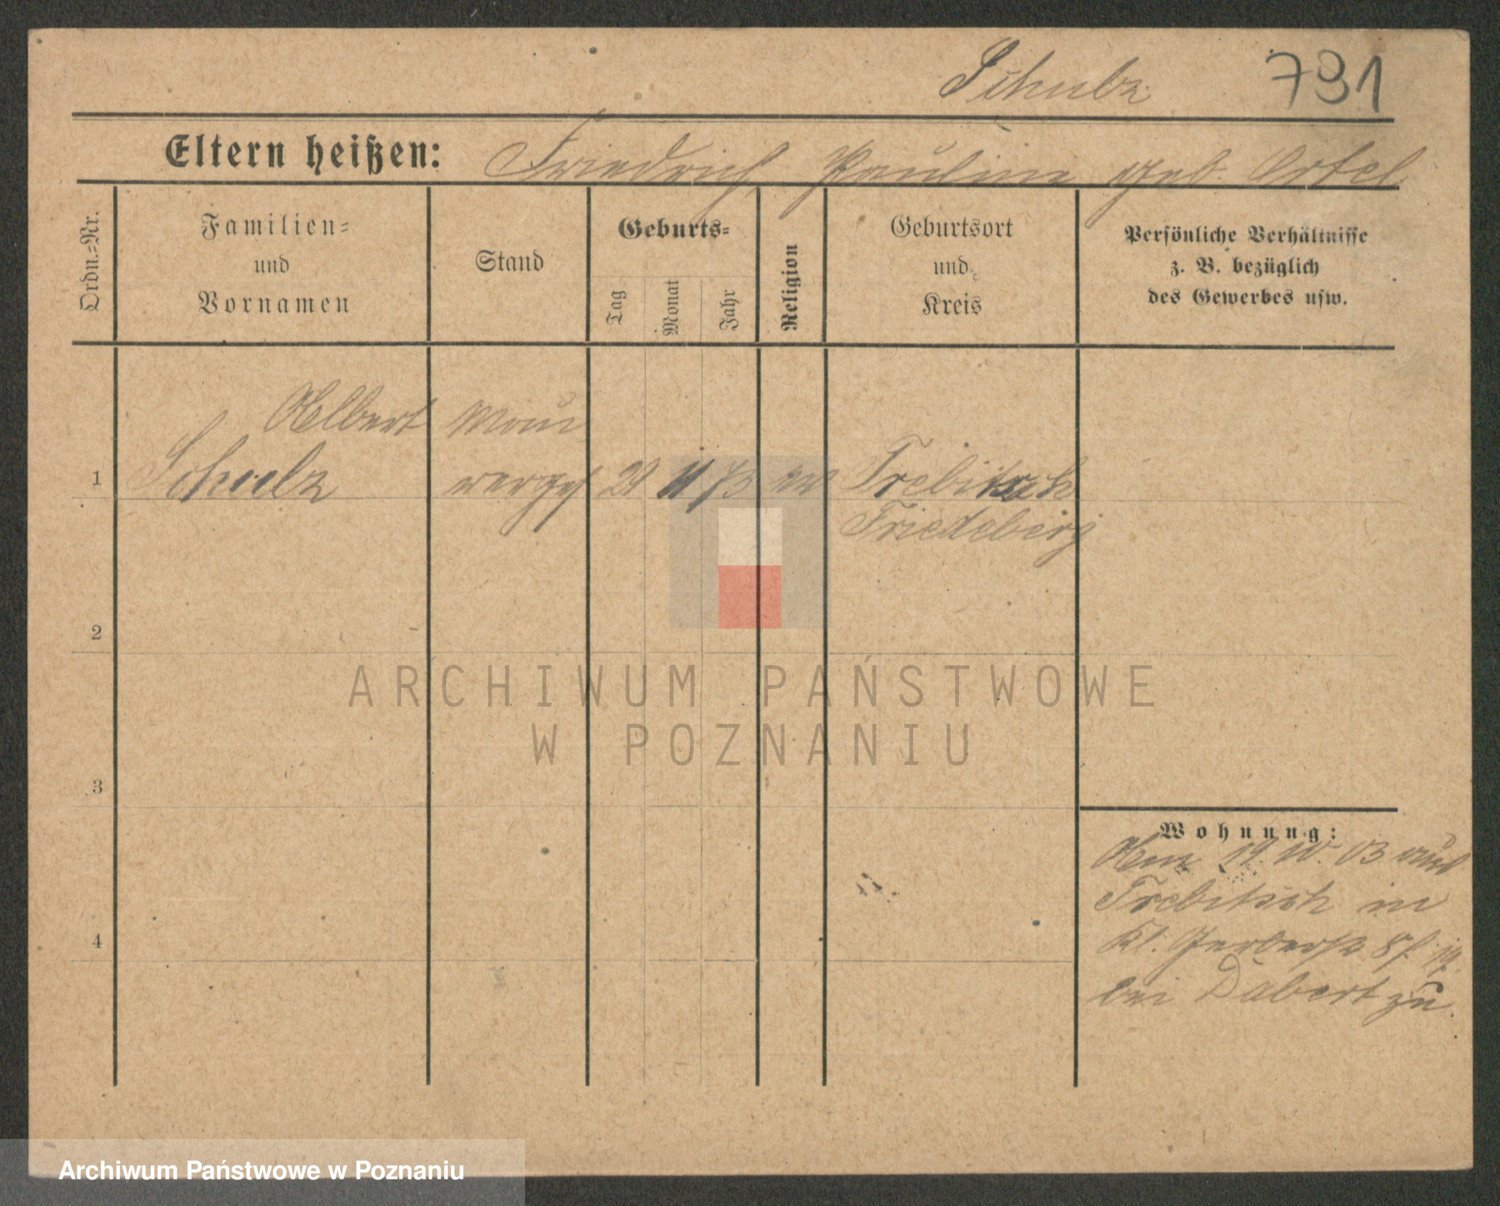 Schulz 791
Eltern heißen: Friedrich, Pauline geb. Ortel
Ordn.-Nr.
Familien-
und
Vornamen
Stand
Geburts-
Tag
Monat
Jahr
Religion
Geburtsort
und
Kreis
Persönliche Verhältnisse
z. B. bezüglich
des Gewerbes usw.
Albert
Schulz
Mau
rergs
1
11
ev
Trebitsch
Friedeberg
2
3
4
Wohnung:
Am 19. 10. 03 aus
Trebitsch in
Kl. Gerberstr 8
bei Dabert zu.
ARCHIWUM PAŃSTWOWE
W POZNANIU
Archiwum Państwowe w Poznaniu